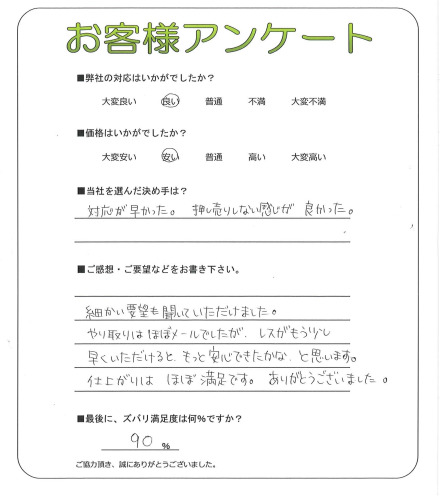 お客様アンケート
■弊社の対応はいかがでしたか？
大変良い 良い 普通 不満 大変不満
■価格はいかがでしたか？
大変安い 安い 普通 高い 大変高い
■当社を選んだ決め手は？
対応が早かった。 押し売りしない感じが 良かった。
■ご感想・ご要望などをお書き下さい。
細かい要望も聞いていただけました。
やり取りはほぼメールでしたが、レスがもう少し
早くいただけると、もっと安心できたかな、と思います。
仕上がりは ほぼ満足です。 ありがとうございました。
■最後に、ズバリ満足度は何%ですか？
90 %
ご協力頂き、誠にありがとうございました。